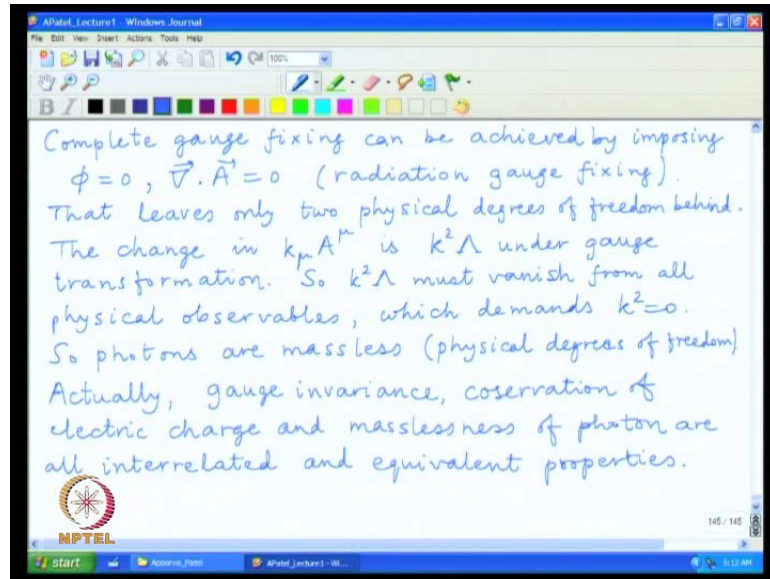 APatel_Lecture1 - Windows Journal
File Edit View Insert Actions Tools Help
100%
B I
Complete gauge fixing can be achieved by imposing
ϕ=0, ∇⃗.A⃗=0 (radiation gauge fixing).
That leaves only two physical degrees of freedom behind.
The change in kμA^μ is k²Λ under gauge
transformation. So k²Λ must vanish from all
physical observables, which demands k²=0.
So photons are massless (physical degrees of freedom)
Actually, gauge invariance, coservation of
electric charge and masslessness of photon are
all interrelated and equivalent properties.
NPTEL
145 / 145
start Apoorva_Patel APatel_Lecture1 - Wi... 5:12 AM